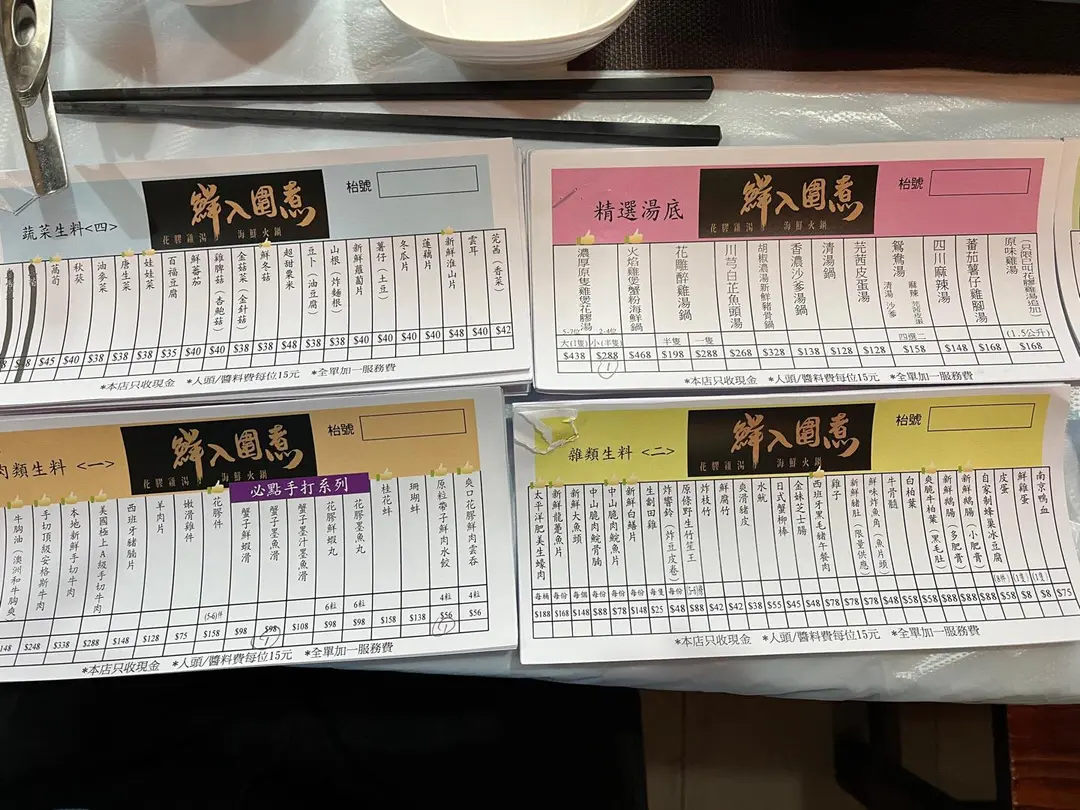 蔬菜生料<四>
鮮入圍煮
花膠雞湯 海鮮火鍋
枱號
萵筍 $45
秋葵 $40
油麥菜 $38
唐生菜 $38
娃娃菜 $38
百福豆腐 $35
鮮蕃茄 $40
雞脾菇（杏鮑菇） $40
金菇菜（金針菇） $38
鮮冬菇 $38
超甜粟米 $38
豆卜（油豆腐） $38
山根（炸麵根） $38
新鮮蘿蔔片 $40
薯仔（土豆） $40
冬瓜片 $40
蓮藕片 $40
新鮮淮山片 $48
雲耳 $40
芫茜（香菜） $42
*本店只收現金 *人頭/醬料費每位15元 *全單加一服務費
精選湯底
鮮入圍煮
花膠雞湯 海鮮火鍋
枱號
濃厚原隻雞煲花膠湯 5-7位 大(1隻) $438 2-4位 小(半隻) $288
火焰雞煲蟹粉海鮮鍋 $468
花雕醉雞湯鍋 半隻 $198 一隻 $288
川芎白芷魚頭湯 $268
胡椒濃湯新鮮豬骨鍋 $328
香濃沙爹湯鍋 $138
清湯鍋 $128
芫茜皮蛋湯 $128
鴛鴦湯 清湯 沙爹 麻辣 芫茜皮蛋 四選二 $158
四川麻辣湯 $148
蕃茄薯仔雞腳湯 $168
原味雞湯（只限四花膠雞湯追加） (1.5公升) $168
*本店只收現金 *人頭/醬料費每位15元 *全單加一服務費
肉類生料 <一>
鮮入圍煮
花膠雞湯 海鮮火鍋
枱號
必點手打系列
牛胸油（澳洲和牛胸爽 148
手切頂級安格斯牛肉 $248
本地新鮮手切牛肉 $338
美國極上A級手切牛肉 $288
西班牙豬腩片 $148
羊肉片 $128
嫩滑雞件 $75
花膠件 (5-6)件 $158
蟹子鮮蝦滑 $98
蟹子墨魚滑 $98
蟹子墨汁墨魚滑 $108
花膠鮮蝦丸 6粒 $98
花膠墨魚丸 6粒 $98
桂花蚌 $158
珊瑚蚌 $138
原粒帶子鮮肉水餃 4粒 $56
爽口花膠鮮肉雲吞 4粒 $56
*本店只收現金 *人頭/醬料費每位15元 *全單加一服務費
雜類生料 <二>
鮮入圍煮
花膠雞湯 海鮮火鍋
枱號
太平洋肥美生蠔肉 每桶 $188
新鮮龍躉魚片 每份 $168
新鮮大魚頭 每個 $148
中山脆肉鯇骨腩 每份 $88
中山脆肉鯇魚片 每份 $78
新鮮白鱔片 每份 $148
生劏田雞 每隻 $25
炸響鈴（炸豆皮卷） 每份 $48
原條野生竹笙王 $88
炸枝竹 $42
鮮腐竹 $42
爽滑豬皮 $38
水魷 $55
日式蟹柳棒 $45
金妹芝士腸 $48
西班牙黑毛豬午餐肉 $78
雞子 $78
新鮮豬𦟌（限量供應） $78
鮮味炸魚角（魚片頭） $48
牛骨髓 $58
白柏葉 $58
爽脆牛柏葉（黑毛肚） $88
新鮮鵝腸（多肥膏） $88
新鮮鵝腸（小肥膏） $88
自家制蜂巢冰豆腐 (8件) $58
皮蛋 (1隻) $8
鮮雞蛋 (1隻) $8
南京鴨血 $75
*本店只收現金 *人頭/醬料費每位15元 *全單加一服務費